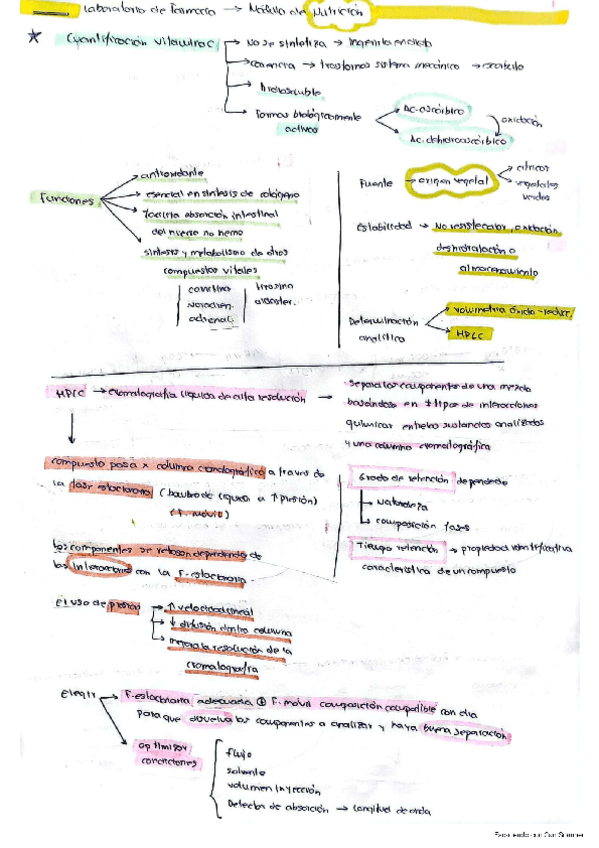 Laboratorio de Farmacia → Módulo de Nutrición
* Cuantificación vitamina C
→ No se sintetiza → Ingerirla en dieta
→ carencia → trastornos sistema mecánico → escorbuto
→ hidrosoluble
→ Formas biológicamente activas
Ac. ascórbico
oxidación
Ac. dehidroascórbico
Funciones
antioxidante
esencial en síntesis de colágeno
Facilita absorción intestinal
del hierro no hemo
síntesis y metabolismo de otros
compuestos vitales
carnitina
Noradren.
adrenal.
tirosina
Fuente → origen vegetal
cítricos
vegetales
verdes
Estabilidad → No resiste calor, oxidación,
deshidratación o
almacenamiento
Determinación
analítica
volumetría óxido-reducc.
HPLC
HPLC → cromatografía líquida de alta resolución →
separa los componentes de una mezcla
basándose en ≠ tipos de interacciones
químicas entre las sustancias analizadas
y una columna cromatográfica
compuesto pasa x columna cromatográfica a través de
la fase estacionaria (bombeo de líquido a ↑ presión)
(F. móvil)
los componentes se retrasan dependiendo de
las interacciones con la F. estacionaria
Grado de retención dependerá
→ naturaleza
→ composición fases
Tiempo retención → propiedad identificativa
característica de un compuesto
El uso de presión
→ ↑ velocidad lineal
→ ↓ difusión dentro columna
→ mejora la resolución de la
cromatografía
Elegir
F. estacionaria adecuada ⊕ F. móvil composición compatible con ella
para que disuelva los componentes a analizar y haya buena separación
optimizar
condiciones
flujo
solvente
volumen inyección
Detector de absorción → longitud de onda
Escaneado con CamScanner